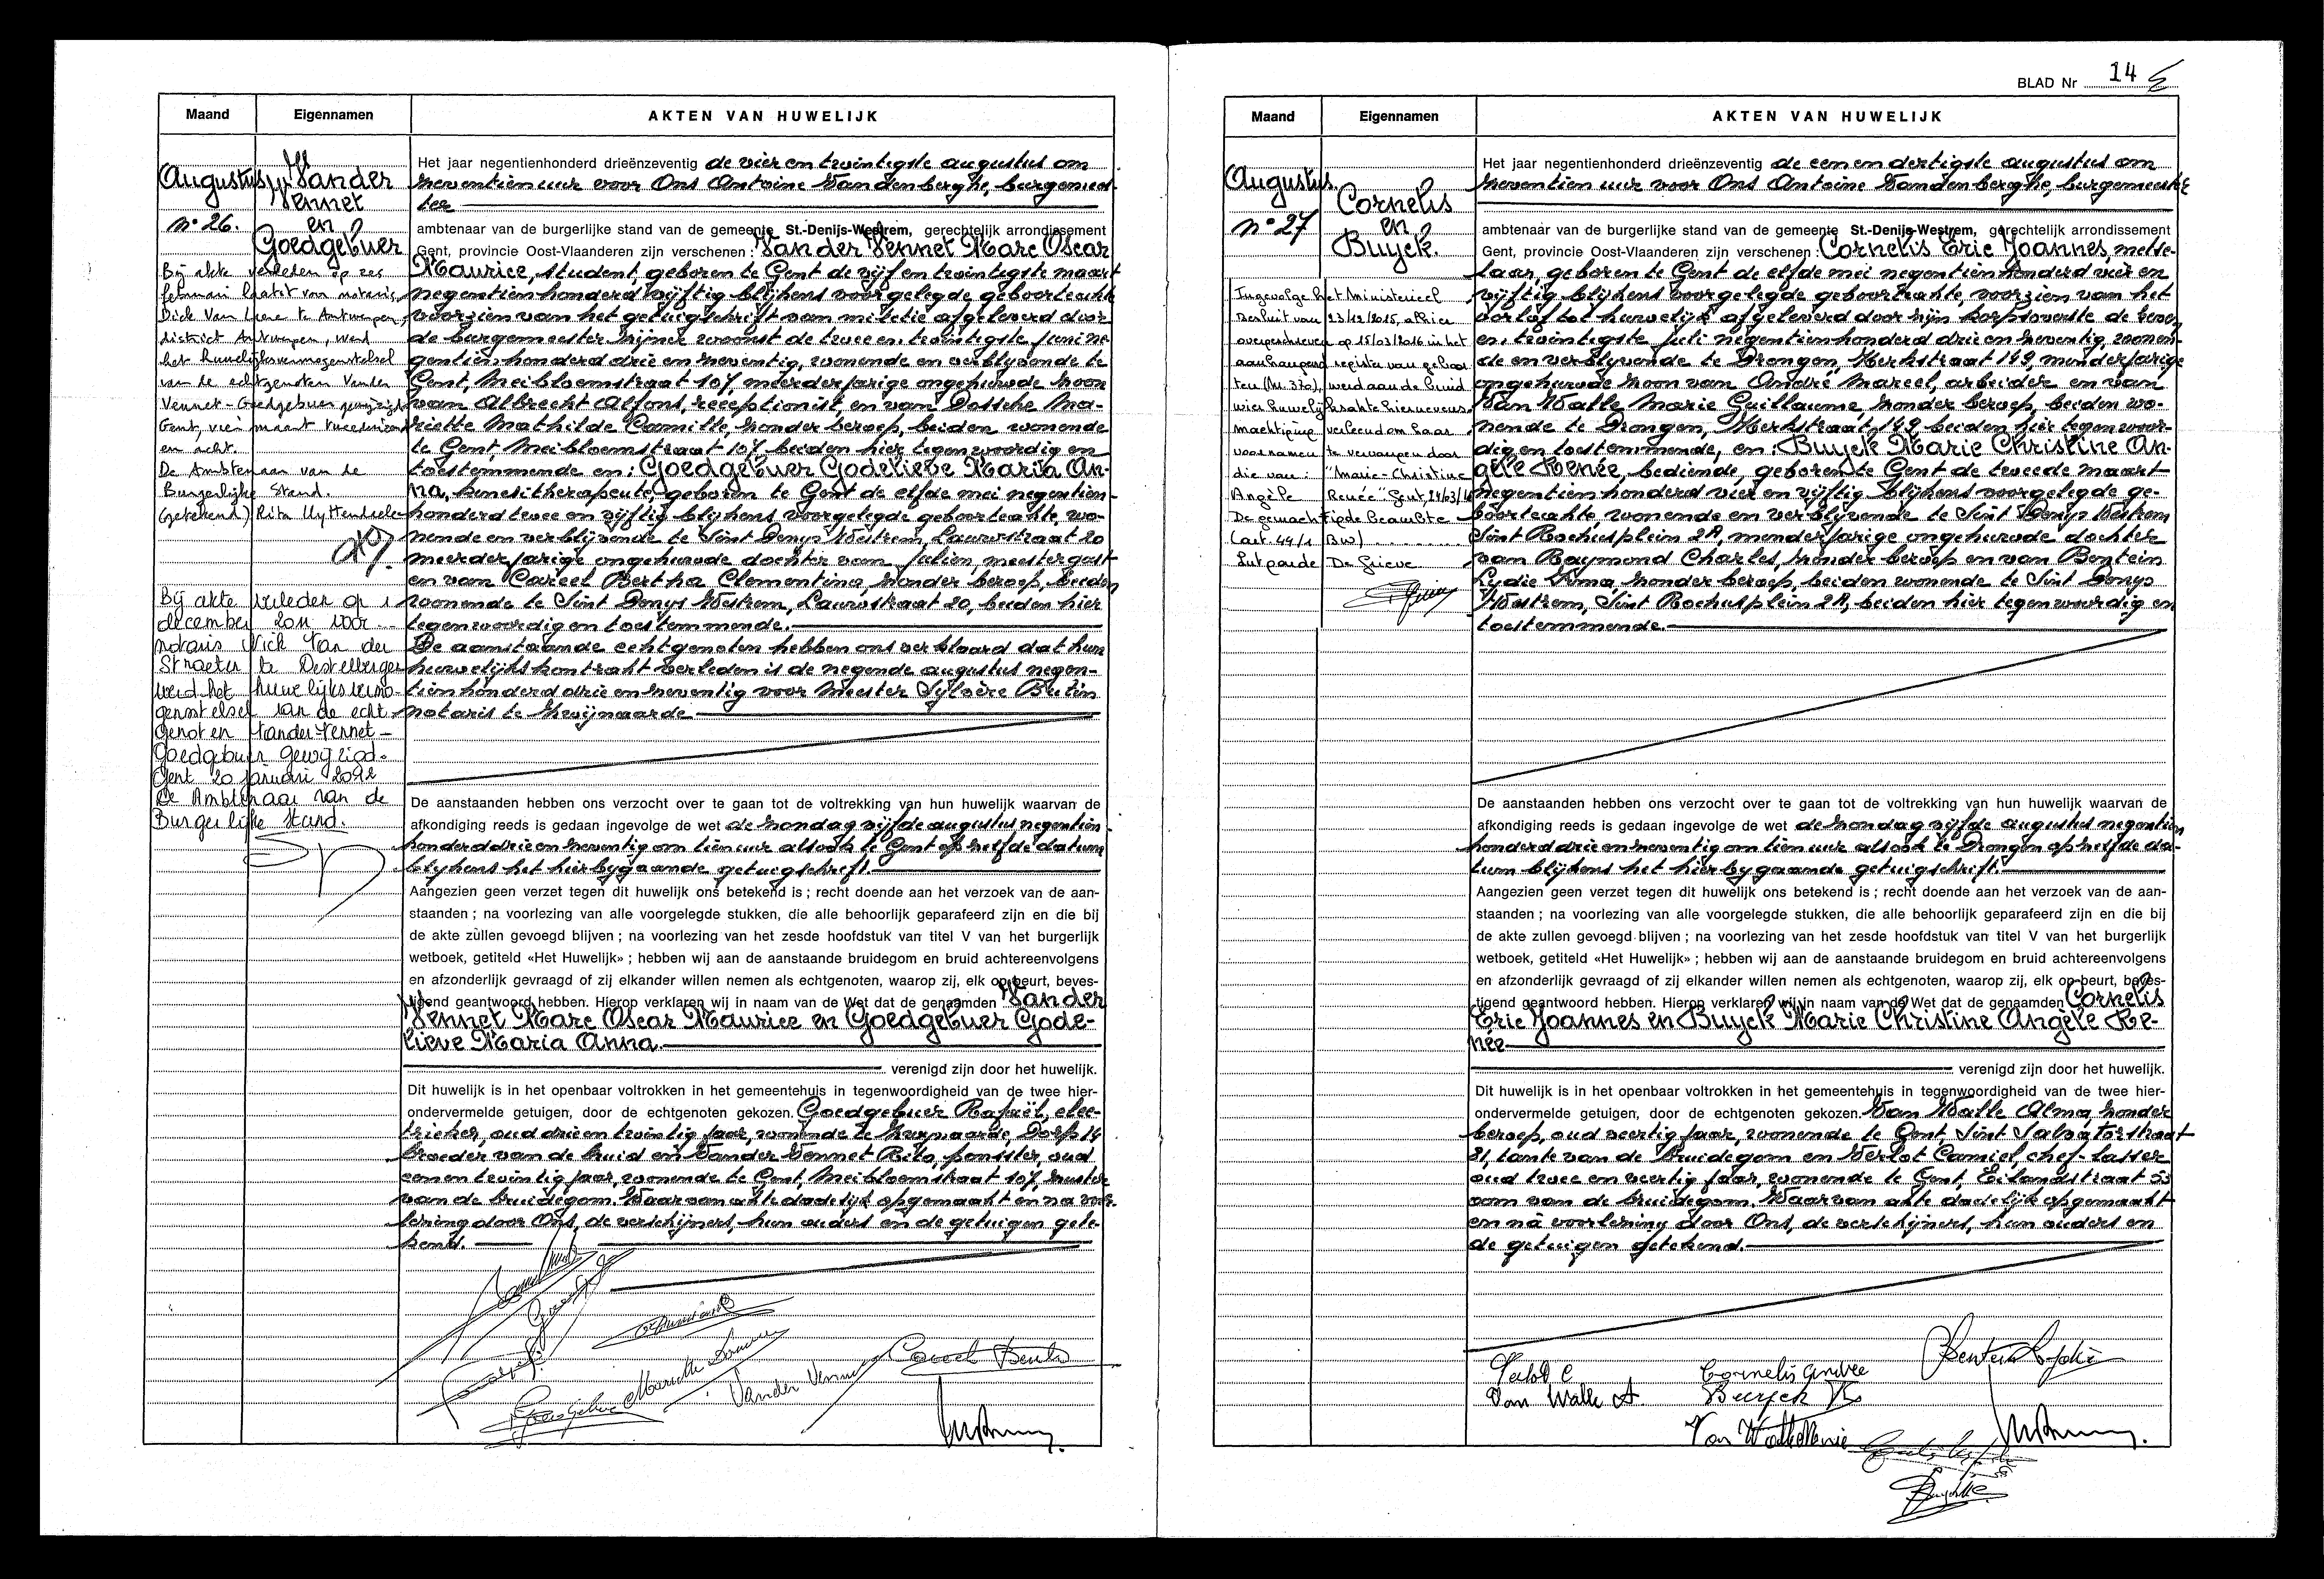 Maand
Eigennamen
AKTEN VAN HUWELIJK
Augustus
n° 26.
Vander
Vennet
en
Goedgebuer
Bij akte verleden op zes
februari laatst voor notaris
Dick Van Laere te Antwerpen,
district Antwerpen, werd
het huwelijksvermogenstelsel
van de echtgenoten Vander
Vennet-Goedgebuer gewijzigd
Gent, vier maart tweeduizend
en acht.
De Ambtenaar van de
Burgerlijke Stand.
(getekend) Rita Uyttendaele
Bij akte verleden op 1
december 2011 voor
notaris Nick Van der
Straeten te Destelbergen
werd het huwelijksvermo-
genstelsel van de echt
genoten Vander Vennet -
Goedgebuer gewijzigd.
Gent 20 januari 2012
De Ambtenaar van de
Burgerlijke Stand.
Het jaar negentienhonderd drieënzeventig de vier en twintigste augustus om
zeventien uur voor Ons Antoine Vandenberghe, burgemees-
ter
ambtenaar van de burgerlijke stand van de gemeente St.-Denijs-Westrem, gerechtelijk arrondissement
Gent, provincie Oost-Vlaanderen zijn verschenen : Vander Vennet Marc Oscar
Maurice, student, geboren te Gent de vijf en twintigste maart
negentienhonderd vijftig blijkens voorgelegde geboorteakte
voorzien van het getuigschrift van militie afgeleverd door
de burgemeester zijner woonst de twee en twintigste juni ne-
gentienhonderd drie en zeventig, wonende en verblijvende te
Gent, Meibloemstraat 107 meerderjarige ongehuwde zoon
van Albrecht Alfons, receptionist, en van Dossche Ma-
riette Mathilde Camille, zonder beroep, beiden wonende
te Gent, Meibloemstraat 107 beiden hier tegenwoordig en
toestemmende en : Goedgebuer Godelieve Maria An-
na, kinesitherapeute, geboren te Gent de elfde mei negentien-
honderd twee en vijftig blijkens voorgelegde geboorteakte, wo-
nende en verblijvende te Sint Denys Westrem, Lauwstraat 20
meerderjarige ongehuwde dochter van Julien, meestergast
en van Careel Bertha Clementina, zonder beroep, beiden
wonende te Sint Denys Westrem, Lauwstraat 20, beiden hier
tegenwoordig en toestemmende.
De aanstaande echtgenoten hebben ons verklaard dat hun
huwelijkskontrakt verleden is de negende augustus negen-
tienhonderd drie en zeventig voor Meester Sylvère Bultin
notaris te Zwijnaarde
De aanstaanden hebben ons verzocht over te gaan tot de voltrekking van hun huwelijk waarvan de
afkondiging reeds is gedaan ingevolge de wet de zondag vijfde augustus negentien-
honderd drie en zeventig om tien uur alsook te Gent op zelfde datum
blijkens het hierbijgaande getuigschrift.
Aangezien geen verzet tegen dit huwelijk ons betekend is ; recht doende aan het verzoek van de aan-
staanden ; na voorlezing van alle voorgelegde stukken, die alle behoorlijk geparafeerd zijn en die bij
de akte zullen gevoegd blijven ; na voorlezing van het zesde hoofdstuk van titel V van het burgerlijk
wetboek, getiteld «Het Huwelijk» ; hebben wij aan de aanstaande bruidegom en bruid achtereenvolgens
en afzonderlijk gevraagd of zij elkander willen nemen als echtgenoten, waarop zij, elk op beurt, beves-
tigend geantwoord hebben. Hierop verklaren wij in naam van de Wet dat de genaamden Vander
Vennet Marc Oscar Maurice en Goedgebuer Gode-
lieve Maria Anna.
verenigd zijn door het huwelijk.
Dit huwelijk is in het openbaar voltrokken in het gemeentehuis in tegenwoordigheid van de twee hier-
ondervermelde getuigen, door de echtgenoten gekozen. Goedgebuer Rafaël, elec-
trieker, oud drie en twintig jaar, wonende te Zwijnaarde, Dorp 14
broeder van de bruid en Vander Vennet Rita, ponsster, oud
een en twintig jaar, wonende te Gent, Meibloemstraat 107, zuster
van de bruidegom. Waarvan akte dadelijk opgemaakt en na voor-
lezing door Ons, de verschijners, hun ouders en de getuigen gete-
kend.
Vander Vennet
Careel Bertha
BLAD Nr 14
Maand
Eigennamen
AKTEN VAN HUWELIJK
Augustus
n° 27
Cornelis
en
Buyck.
Ingevolge het Ministerieel
Besluit van 23/12/2015, alhier
overgeschreven op 15/03/2016 in het
aanhangend register van geboor
ten (Nr. 370), werd aan de bruid
wier huwelijksakte hiernevens
machtiging verleend om haar
voornamen te vervangen door
die van : "Marie-Christine
Angèle Renée" Gent, 24/03/16
De gemachtigde beambte
(art. 44/1 BW)
Lutgarde De Grieve
Het jaar negentienhonderd drieënzeventig de een en dertigste augustus om
zeventien uur voor Ons Antoine Vandenberghe, burgemeester
ambtenaar van de burgerlijke stand van de gemeente St.-Denijs-Westrem, gerechtelijk arrondissement
Gent, provincie Oost-Vlaanderen zijn verschenen : Cornelis Eric Joannes, metse-
laar, geboren te Gent de elfde mei negentienhonderd vier en
vijftig blijkens voorgelegde geboorteakte voorzien van het
oorlof tot huwelijk afgeleverd door zijn korpsoverste de zeven
en twintigste juli negentienhonderd drie en zeventig, wonen-
de en verblijvende te Drongen, Merkstraat 149, minderjarige
ongehuwde zoon van André Marcel, arbeider en van
Van Walle Marie Guillaume, zonder beroep, beiden wo-
nende te Drongen, Merkstraat, 149 beiden hier tegenwoor-
dig en toestemmende, en : Buyck Marie Christine An-
gèle Renée, bediende, geboren te Gent de tweede maart
negentienhonderd vier en vijftig blijkens voorgelegde ge-
boorteakte, wonende en verblijvende te Sint Denys Westrem
Sint Rochusplein 2A, minderjarige ongehuwde dochter
van Raymond Charles, zonder beroep en van Bentein
Lydie Irma, zonder beroep, beiden wonende te Sint Denys
Westrem, Sint Rochusplein 2A, beiden hier tegenwoordig en
toestemmende.
De aanstaanden hebben ons verzocht over te gaan tot de voltrekking van hun huwelijk waarvan de
afkondiging reeds is gedaan ingevolge de wet de zondag vijfde augustus negentien
honderd drie en zeventig om tien uur alsook te Drongen op zelfde da-
tum blijkens het hierbygaande getuigschrift.
Aangezien geen verzet tegen dit huwelijk ons betekend is ; recht doende aan het verzoek van de aan-
staanden ; na voorlezing van alle voorgelegde stukken, die alle behoorlijk geparafeerd zijn en die bij
de akte zullen gevoegd blijven ; na voorlezing van het zesde hoofdstuk van titel V van het burgerlijk
wetboek, getiteld «Het Huwelijk» ; hebben wij aan de aanstaande bruidegom en bruid achtereenvolgens
en afzonderlijk gevraagd of zij elkander willen nemen als echtgenoten, waarop zij, elk op beurt, beves-
tigend geantwoord hebben. Hierop verklaren wij in naam van de Wet dat de genaamden Cornelis
Eric Joannes en Buyck Marie Christine Angèle Re-
née
verenigd zijn door het huwelijk.
Dit huwelijk is in het openbaar voltrokken in het gemeentehuis in tegenwoordigheid van de twee hier-
ondervermelde getuigen, door de echtgenoten gekozen. Van Walle Alma, zonder
beroep, oud veertig jaar, wonende te Gent, Sint Salvatorstraat
81, tante van de bruidegom en Verlot Camiel, chef-lasser
oud twee en veertig jaar, wonende te Gent, Eilandstraat 53
oom van de bruidegom. Waarvan akte dadelijk opgemaakt
en na voorlezing door Ons, de verschijners, hun ouders en
de getuigen getekend.
Van Walle A.
Cornelis André
Buyck R